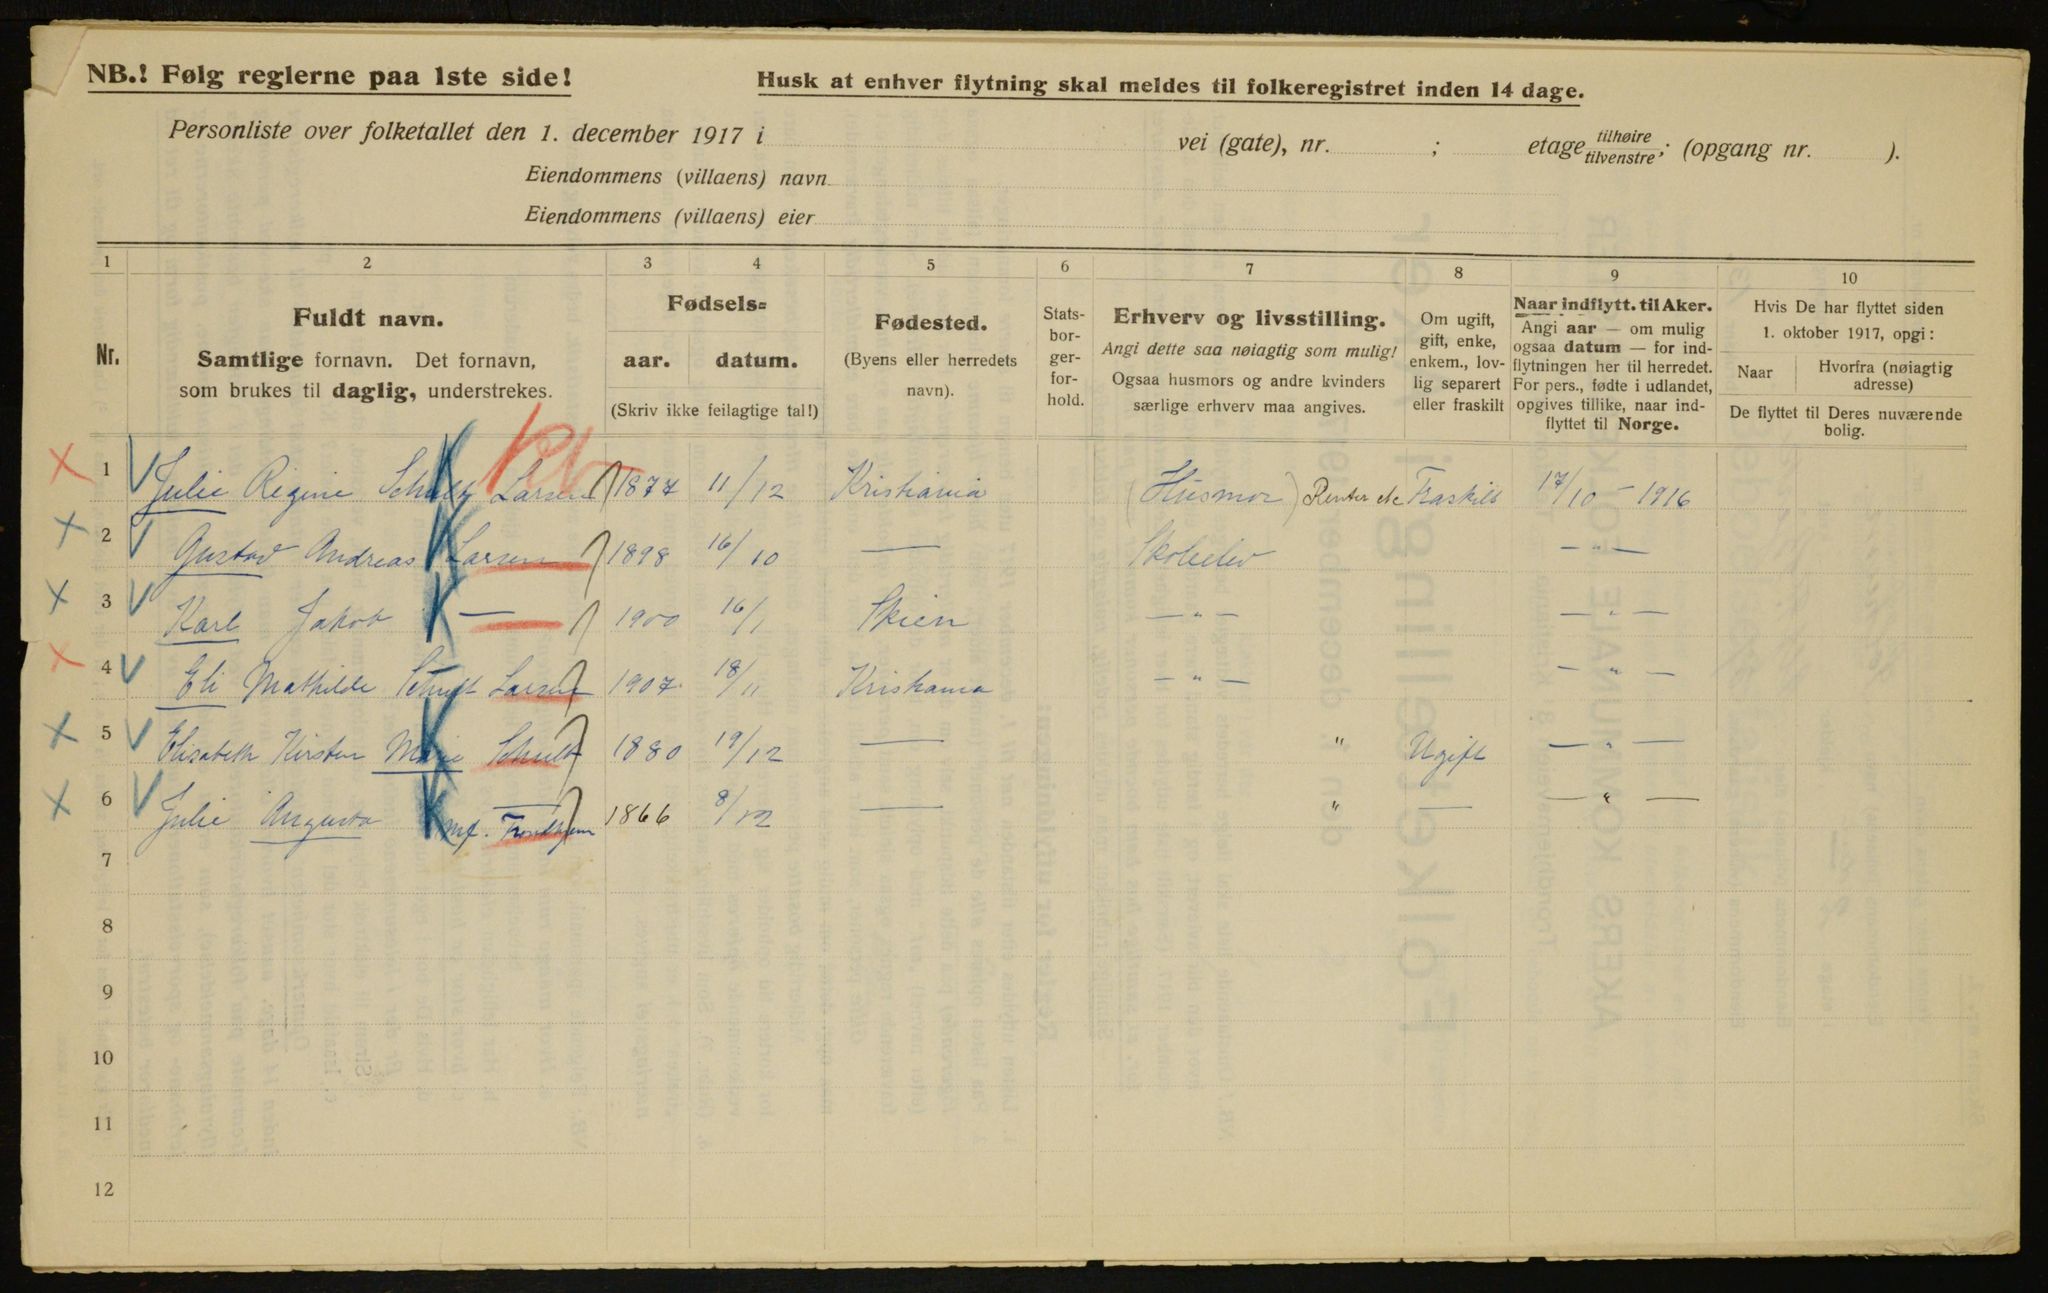 NB.! Følg reglerne paa 1ste side!
Husk at enhver flytning skal meldes til folkeregistret inden 14 dage.
Personliste over folketallet den 1. december 1917 i vei (gate), nr. ; etage tilhøire/tilvenstre; (opgang nr. ).
Eiendommens (villaens) navn
Eiendommens (villaens) eier
1 2 3 4 5 6 7 8 9 10
Nr.
Fuldt navn.
Samtlige fornavn. Det fornavn,
som brukes til daglig, understrekes.
Fødsels=
aar. datum.
(Skriv ikke feilagtige tal!)
Fødested.
(Byens eller herredets
navn).
Stats-
bor-
ger-
for-
hold.
Erhverv og livsstilling.
Angi dette saa nøiagtig som mulig!
Ogsaa husmors og andre kvinders
særlige erhverv maa angives.
Om ugift,
gift, enke,
enkem., lov-
lig separert
eller fraskilt
Naar indflytt. til Aker.
Angi aar — om mulig
ogsaa datum — for ind-
flytningen her til herredet.
For pers., fødte i udlandet,
opgives tillike, naar ind-
flyttet til Norge.
Hvis De har flyttet siden
1. oktober 1917, opgi:
Naar Hvorfra (nøiagtig
adresse)
De flyttet til Deres nuværende
bolig.
1 Julie Regine Schultz Larsen 1877 11/12 Kristiania (Husmor) Renter etc Fraskilt 17/10 - 1916
2 Gustav Andreas Larsen 1898 16/10 — Skoleelev — " —
3 Karl Jakob — 1900 16/1 Skien — " — — " —
4 Eli Mathilde Schult Larsen 1907 18/11 Kristiania — " — — " —
5 Elisabeth Kirsten Marie Schult 1880 19/12 — " Ugift — " —
6 Julie Augusta — 1866 8/12 — " — — " —
mf. Trondhjem
7
8
9
10
11
12